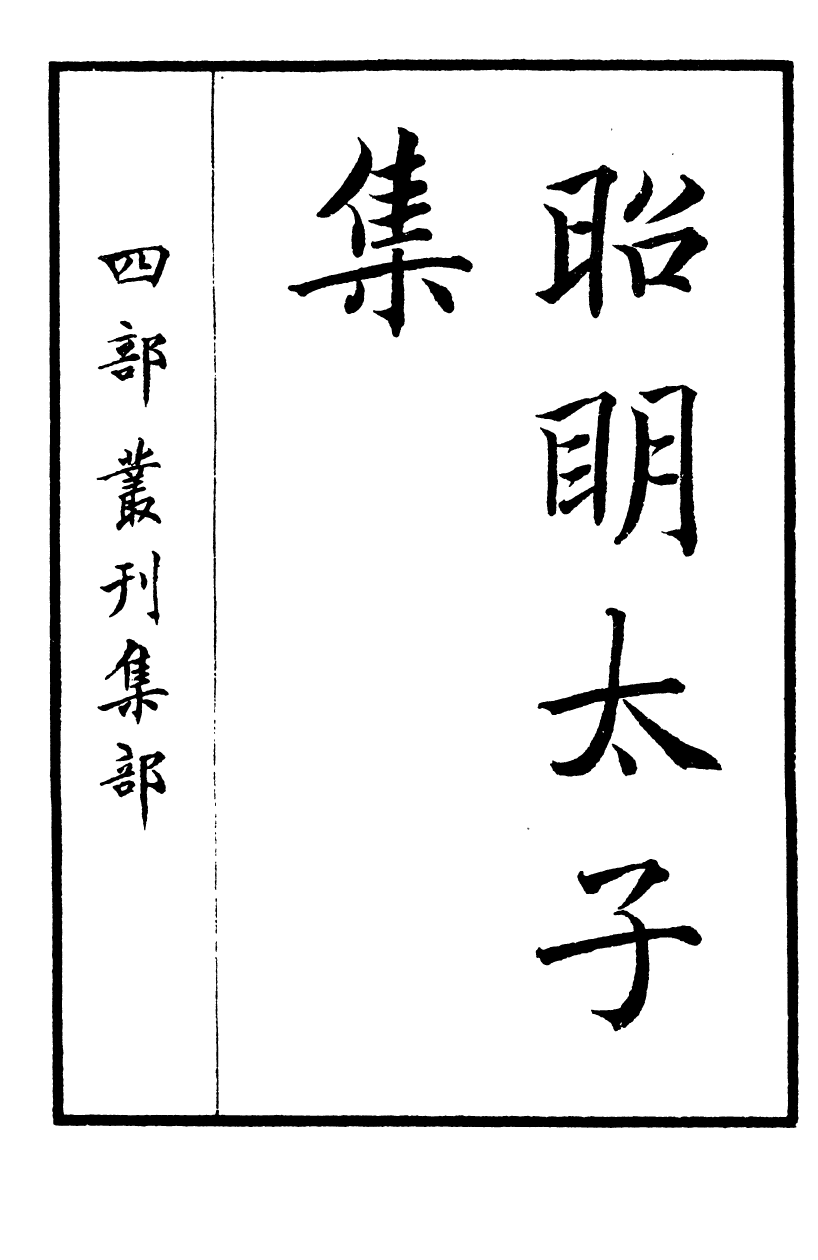 昭明太子
集
四部叢刊集部